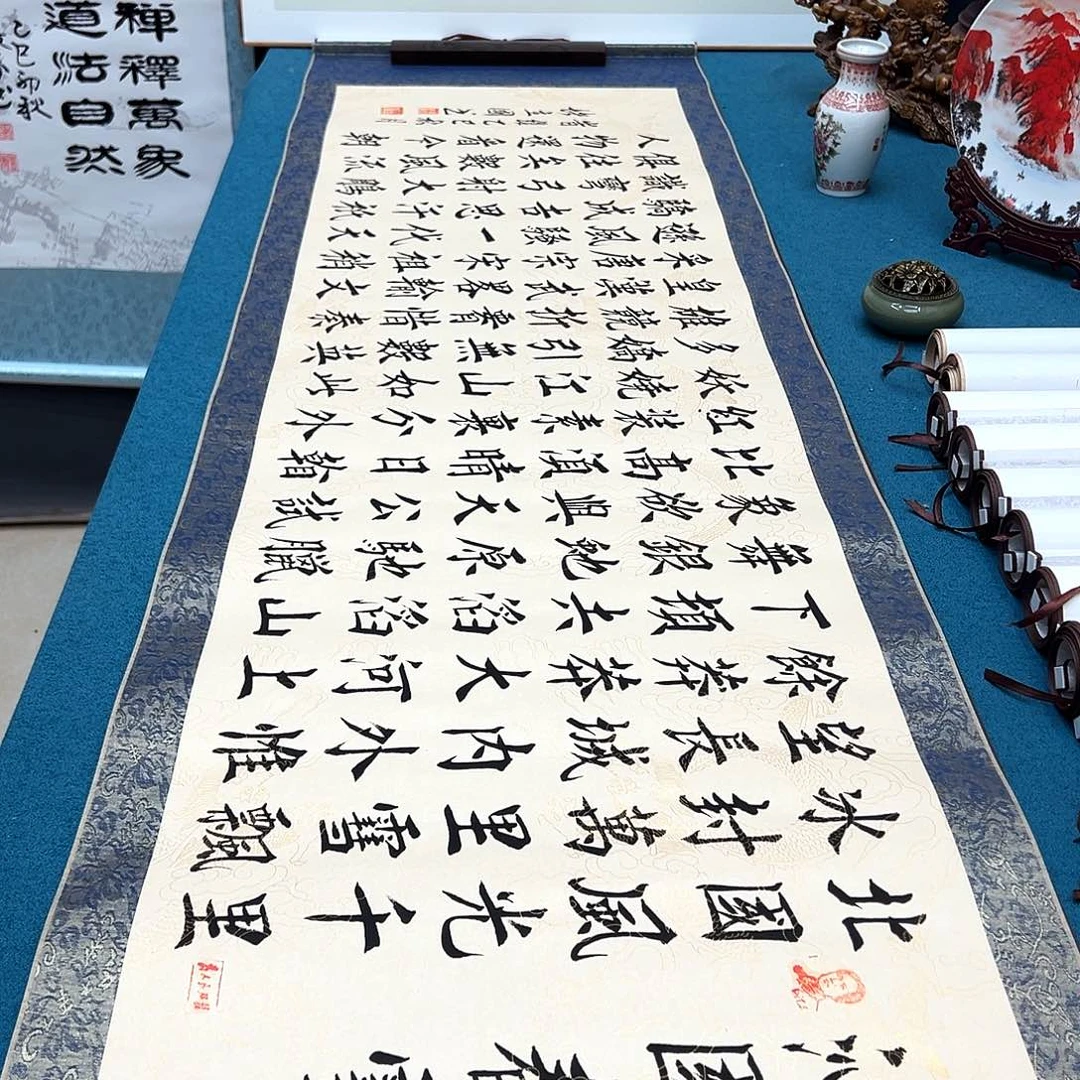 沁園春雪
北國風光千里
冰封萬里雪飄
望長城內外惟
餘莽莽大河上
下頓失滔滔山
舞銀蛇原馳臘
象欲與天公試
比高須晴日看
紅裝素裹分外
妖嬈江山如此
多嬌引無數英
雄競折腰惜秦
皇漢武畧輸文
采唐宗宋祖稍
遜風騷一代天
驕成吉思汗只
識彎弓射大鵰
俱往矣數風流
人物還看今朝
禪釋萬象
道法自然
乙巳初秋